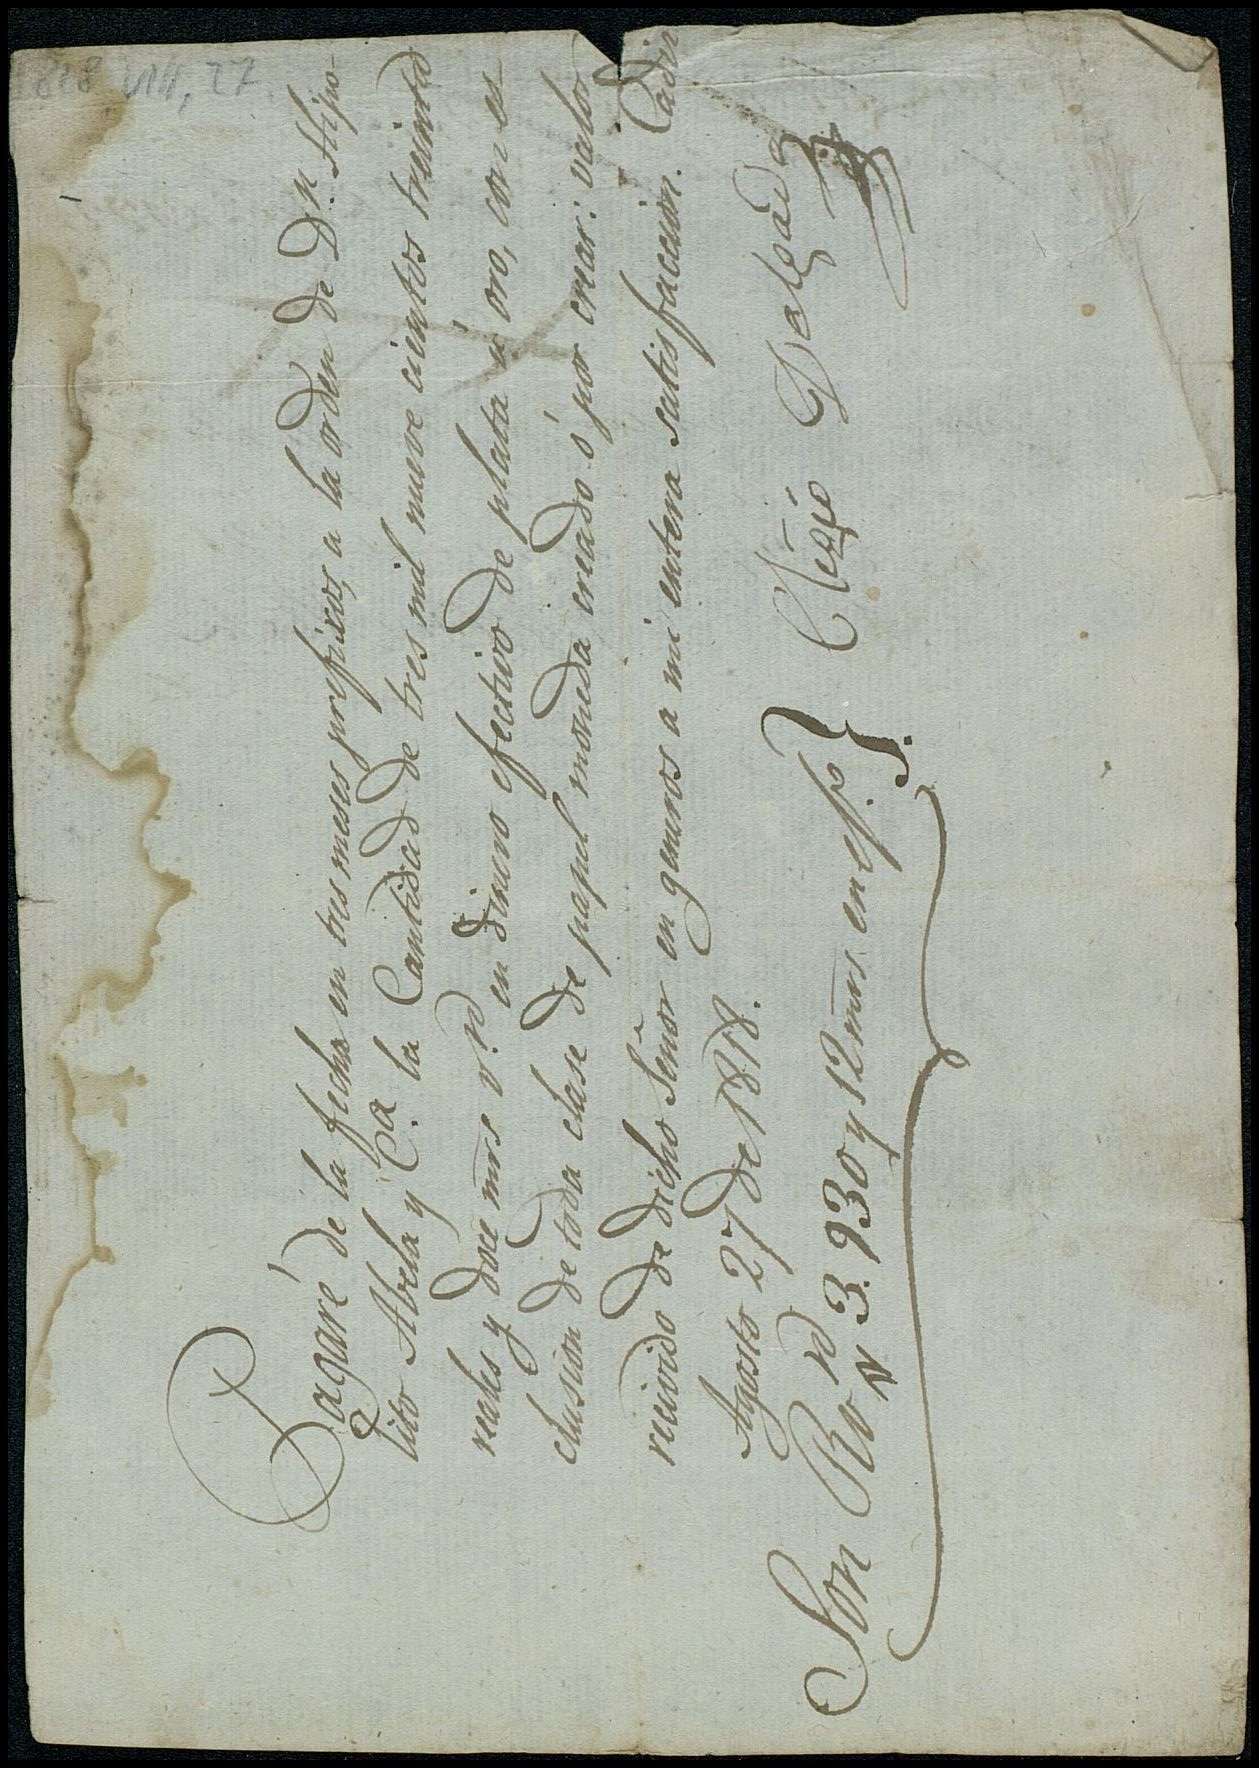 1818 VIII, 27
Pagaré de la fecha en tres meses prefixos, a la orden de Dn. Hipo-
lito Abela y Ca. la Cantidad de tres mil nueve cientos treinta
reales y doce mrs v.n en dinero efectivo de plata u oro, con es-
clusion de toda clase de papel moneda creado ó por crear: valor
recivido de dicho Señor en generos a mi entera satisfaccion. Cadiz
Agosto 27 de 1818.
Son Rs vn 3.930 y 12 mrs. en ef.o
Delgado